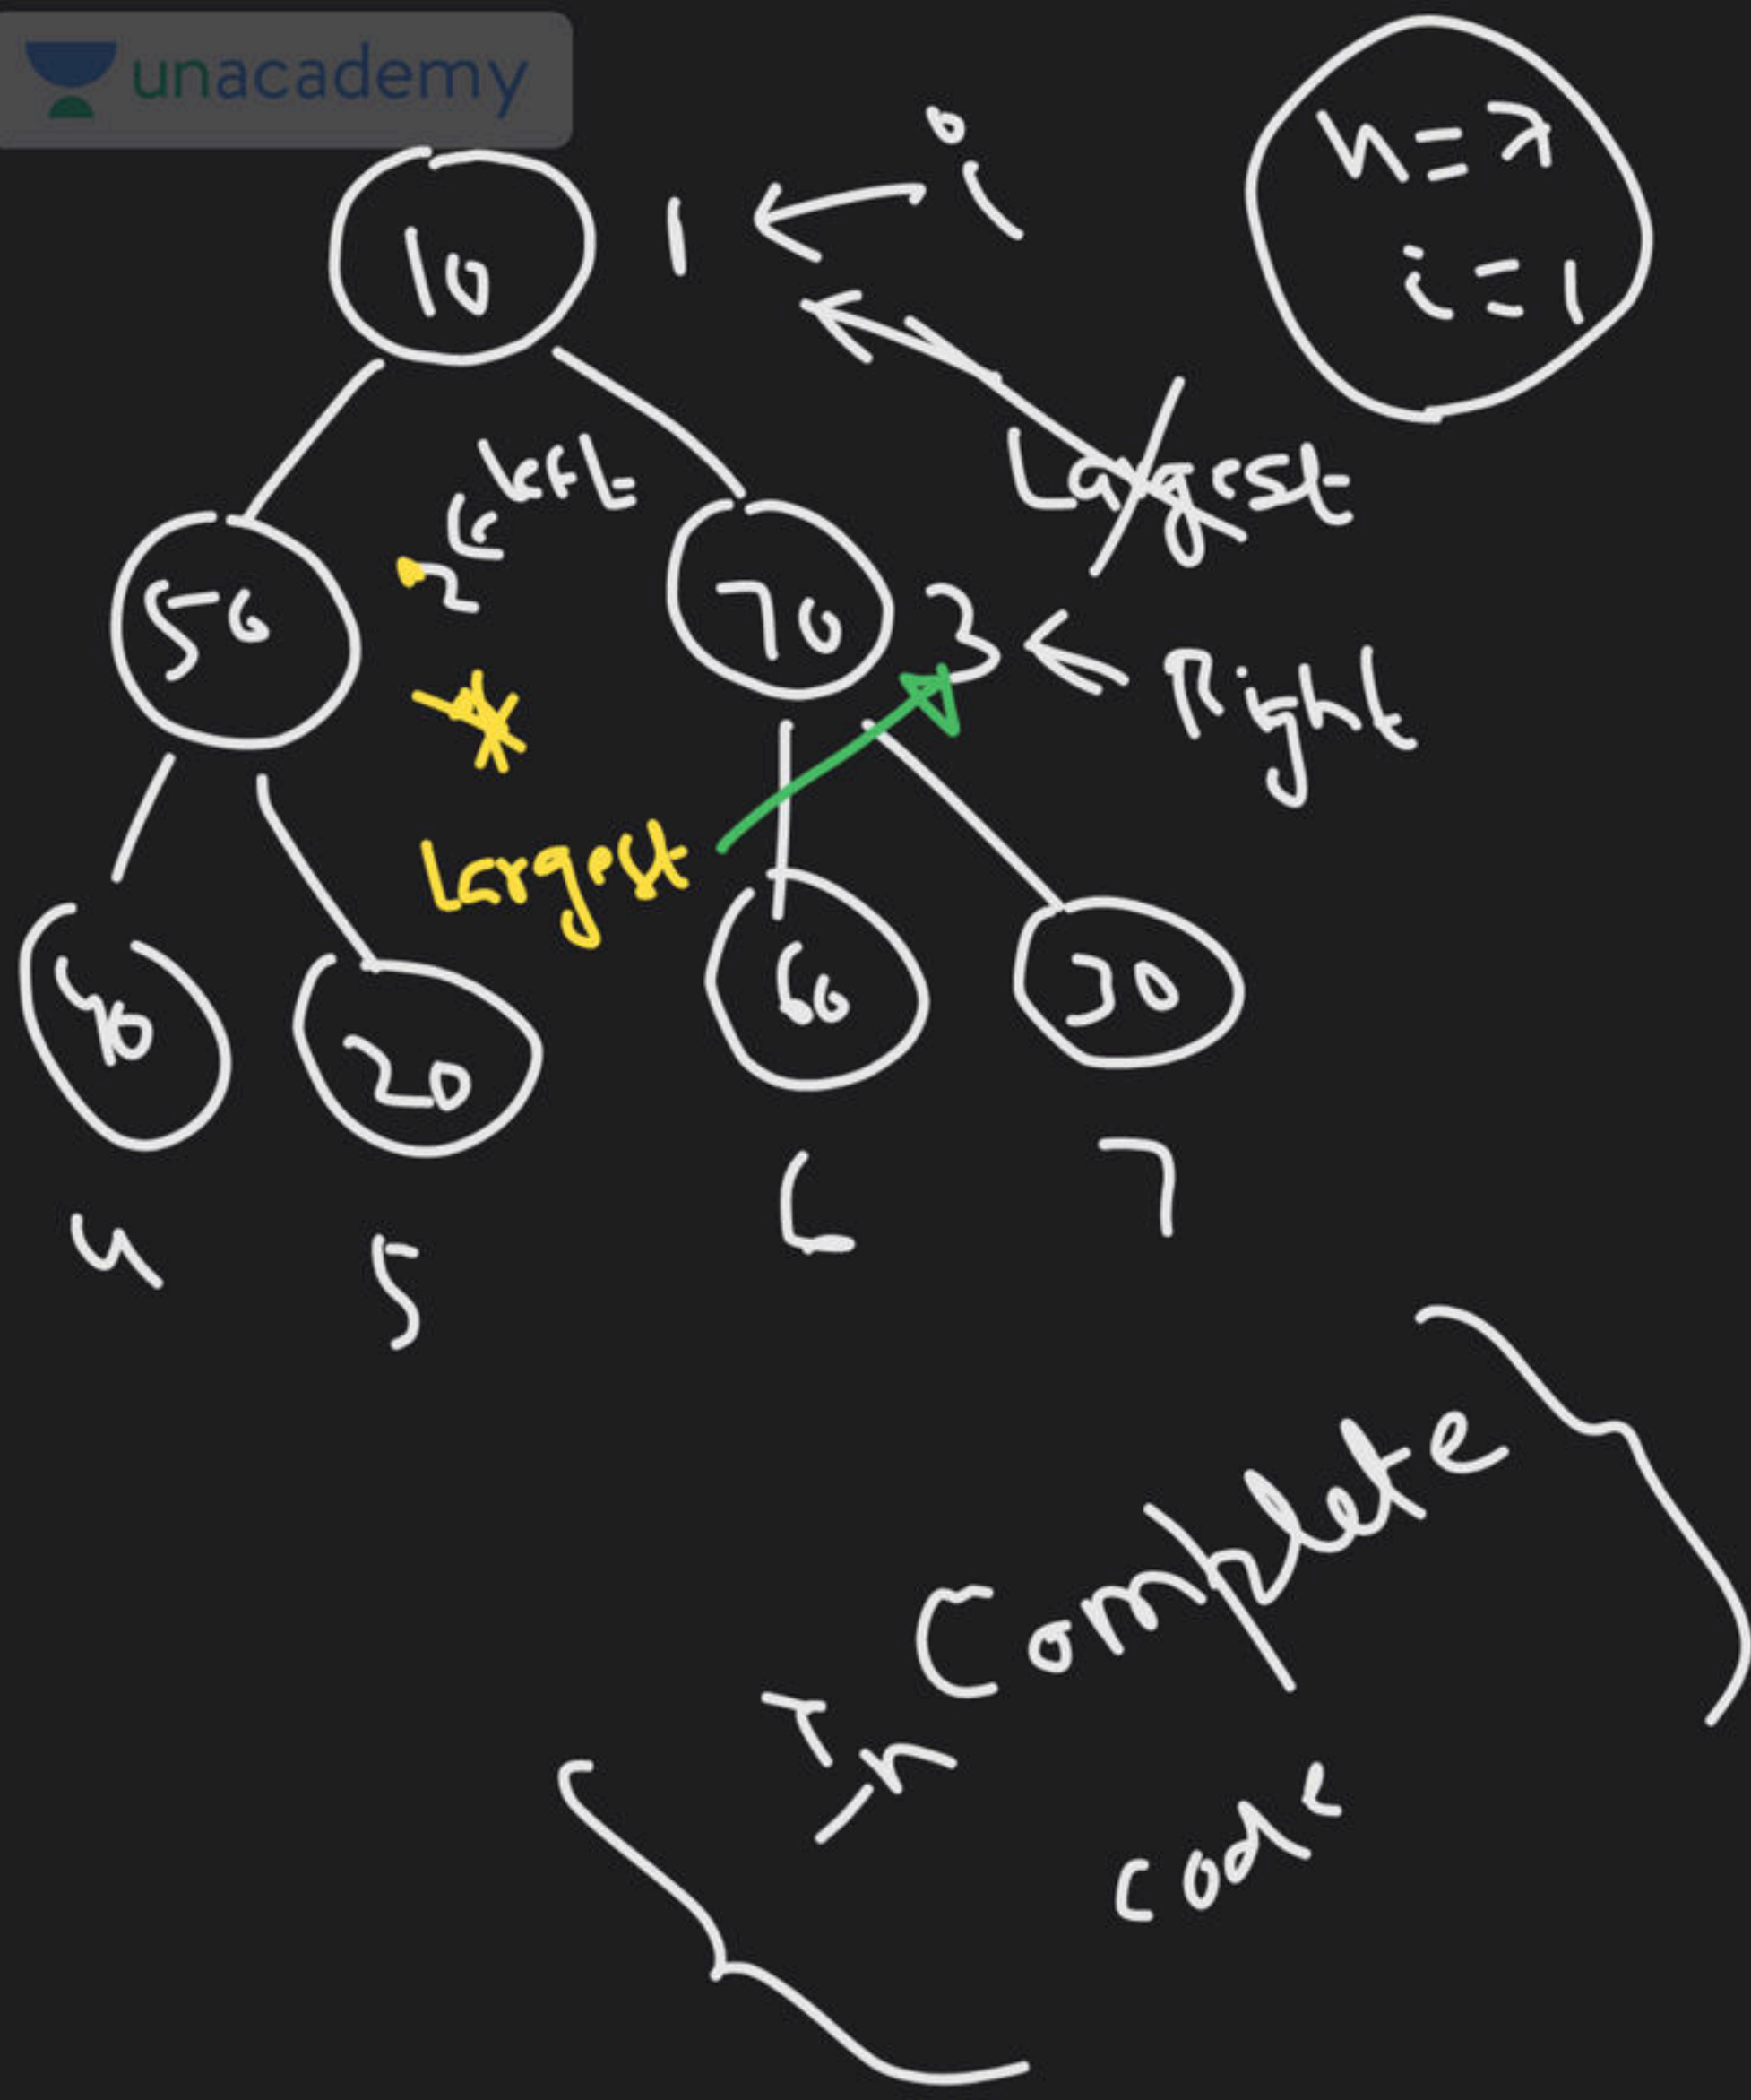 unacademy
n=7
i=1
10 1 ← i
Largest
left
50 2 70 3 ← Right
Largest
40 20 60 30
4 5 6 7
In Complete
code